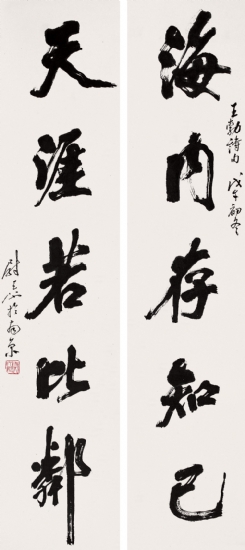 海内存知己
王勃诗句 戊午初冬
天涯若比邻
尉天池于南京